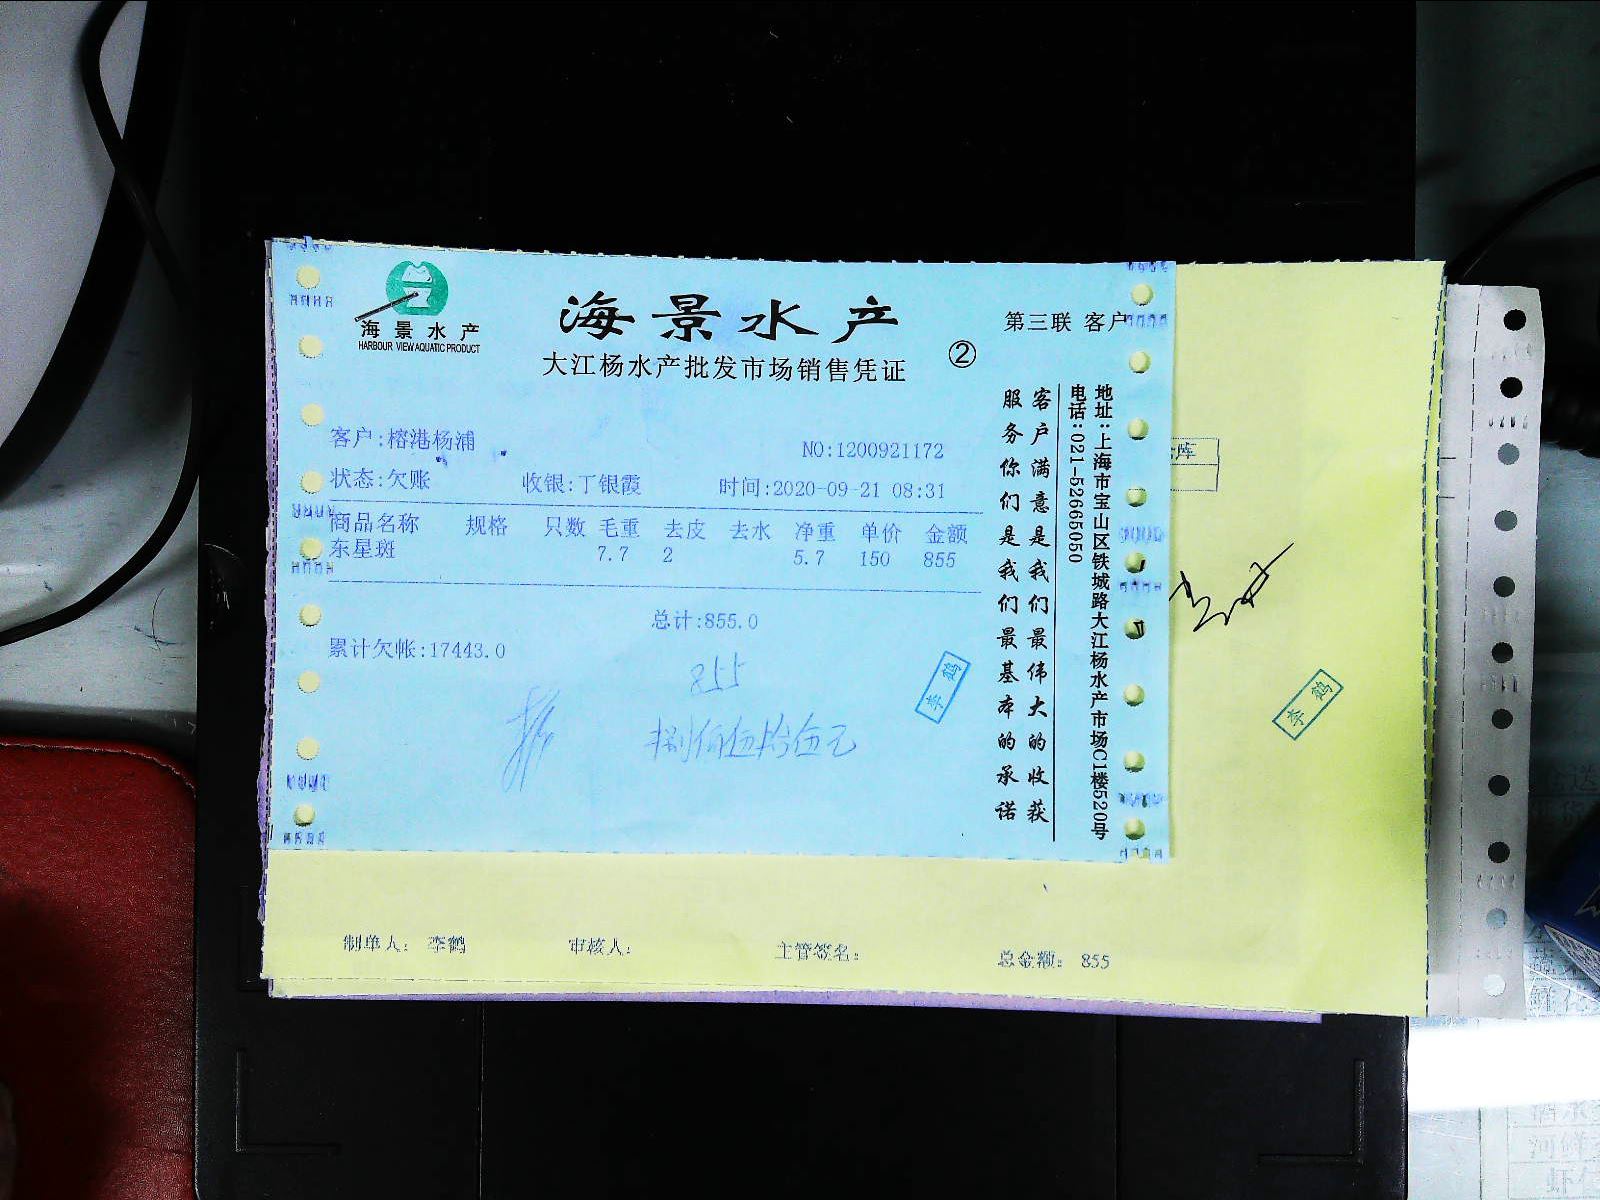 海景水产
HARBOUR VIEW AQUATIC PRODUCT
海景水产
大江杨水产批发市场销售凭证
②
第三联 客户
客户:榕港杨浦
NO:1200921172
状态:欠账 收银:丁银霞 时间:2020-09-21 08:31
商品名称 规格 只数 毛重 去皮 去水 净重 单价 金额
东星斑 7.7 2 5.7 150 855
总计:855.0
累计欠帐:17443.0
855
捌佰伍拾伍元
李鹤
客户满意是我们最伟大的收获
服务你们是我们最基本的承诺
地址:上海市宝山区铁城路大江杨水产市场C1楼520号
电话:021-52665050
库
李鹤
制单人: 李鹤 审核人: 主管签名: 总金额: 855
河鲜